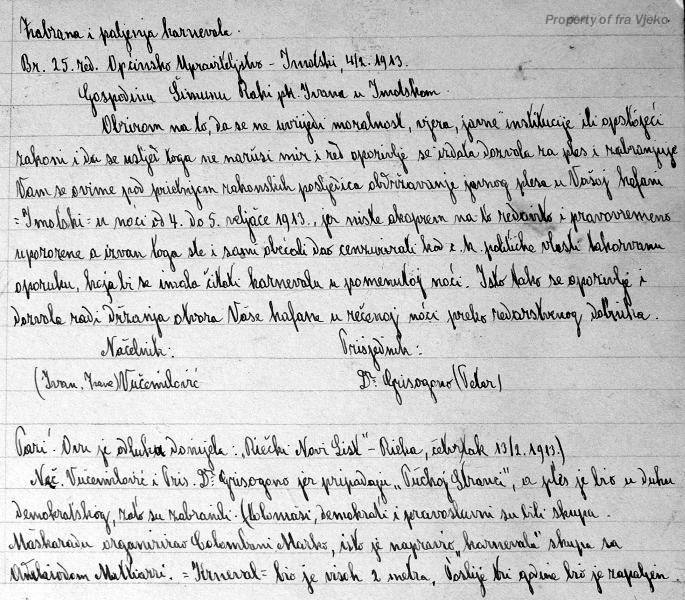 Property of fra Vjeko.
Zabrana i paljenja karnevala.
Br. 25. red. Općinsko Upraviteljstvo - Imotski, 4/2. 1913.
Gospodinu Šimunu Raki pk. Ivana u Imotskom.
Obzirom na to, da se ne uvrijedi moralnost, vjera, javne institucije ili opstojeći
zakoni i da se usljed toga ne naruši mir i red opozivlje se izdata dozvola za ples i zabranjuje
Vam se ovime pod prietnjom zakonskih posljedica obdržavanje javnog plesa u Vašoj kafani
= Imotski = u noći od 4. do 5. veljače 1913., jer niste akoprem na to redovito i pravovremeno
upozorene a izvan toga ste i sami obećali dao cenzurirati kod c. k. političke vlasti takozvanu
oporuku, koja bi se imala čitati karnevalu u pomenutoj noći. Isto tako se opozivlje i
dozvola radi držanja otvora Vaše kafane u rečenoj noći preko redarstvenog dočnika.
Načelnik: Prisjednik:
(Ivan, Ivana) Vučemilović Dr. Grisogono (Petar)
Pazi! Ovu je odluku donijela: „Riečki Novi List" - Rieka, četvrtak 13/2. 1913.)
Nač. Vucemilović i Pris. Dr. Grisogono jer pripadaju „Pučkoj Stranci", a ples je bio u duhu
demokratskog, zato su zabranili. (Kolomaši, demokrati i pravoslavni su bili skupa.
Maškaradu organizirao Colombani Marko, isto je napravio „karnevala" skupa sa
Matkiazzi. = Krneval = bio je visok 2 metra, Poslije tri godine bio je zapaljen.